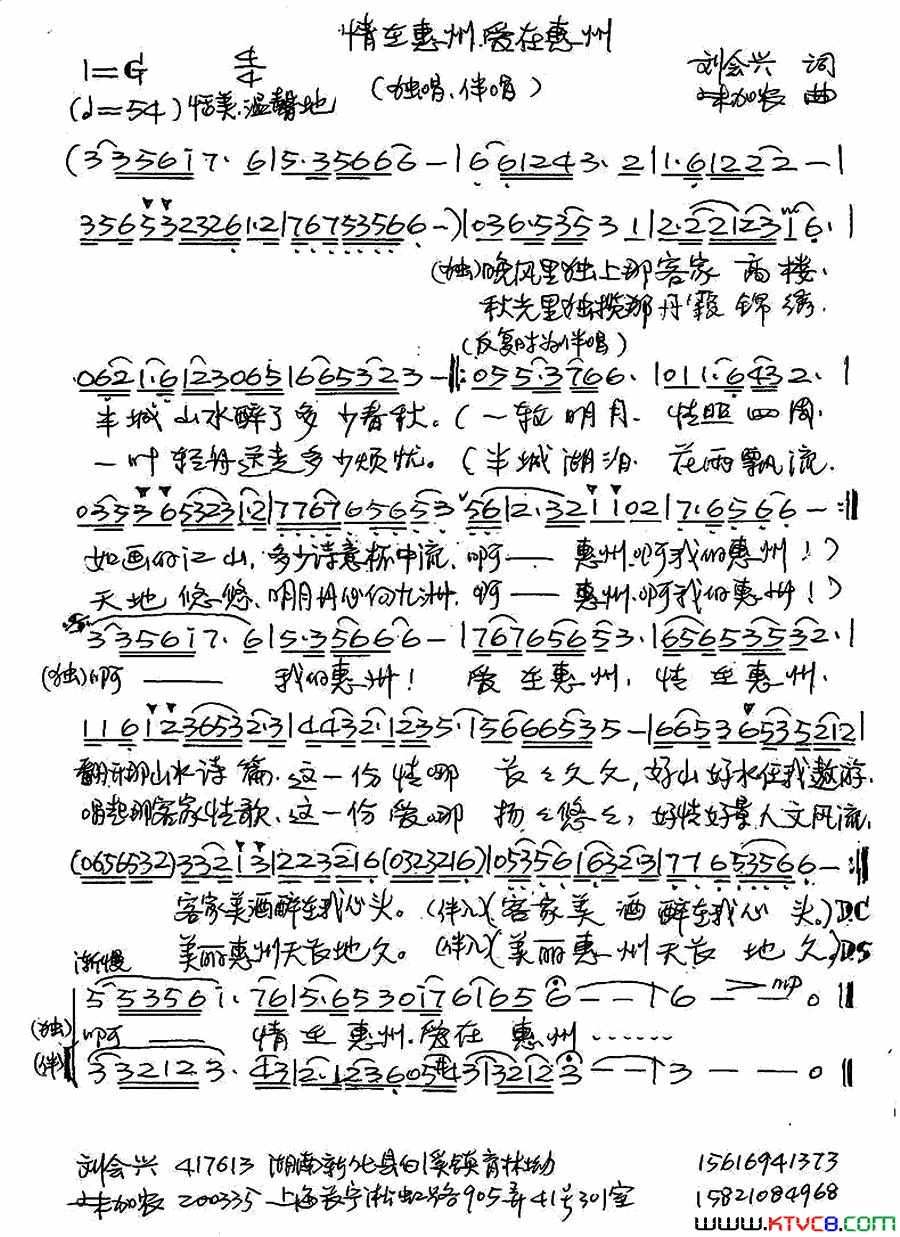 情在惠州.爱在惠州
1=G 4/4 (独唱、伴唱) 刘会兴 词
(♩=54) 恬美.温馨地 加农 曲
(3 3561 7. 6|5.35666 -|6 61243. 2|1.61222 -|
35653 23261.2|767535666 -)|036.5353 1|2.221231 6.|
(独)晚风里独上那客家 高楼.
秋光里独揽那丹霞 锦绣.
(反复时为伴唱)
0621.6123065|6665323 -‖:055.3766.|011.6432.|
半城山水醉了多少春秋。(一轮明月.情照四周.
一叶轻舟送走多少烦忧。(半城湖泊.花雨飘流.
033536532312|776765653 56|2.32 1 102|7.6566 -:‖
如画的江山,多少诗意杯中流,啊—— 惠州.啊我的惠州!)
天地悠悠,明月丹心向九洲,啊—— 惠州.啊我的惠州!)
3 3561 7. 6|5.35666 -|76765653.|656535332.|
(独)啊—— 我的惠州! 爱在惠州,情在惠州.
11612 36532.3|4432.1235.|56666535 -|66536535212|
翻开那山水诗篇.这一份情哪 长々久久,好山好水任我遨游.
唱起那客家情歌.这一份爱哪 扬々悠々,好情好景人文风流,
(0656532)33213|223216(0323216)|0535616323|776535666 -:‖
客家美酒醉在我心头。(伴入)(客家美酒醉在我心头。)D.C
美丽惠州天长地久。(伴入)(美丽惠州天长地久。)D.S
渐慢
5 5356 1. 76|5.653017 6|65 6 - -|6 - - 0‖
(独)啊—— 情在惠州.爱在 惠州……
(伴)3 32123. 43|2.1236054 3|3212 3 - -|3 - - 0‖
mp
刘会兴 417613 湖南新化县白溪镇青林坳 15616941373
加农 200335 上海长宁淞虹路905弄41号301室 15821084968
www.KTVC8.com